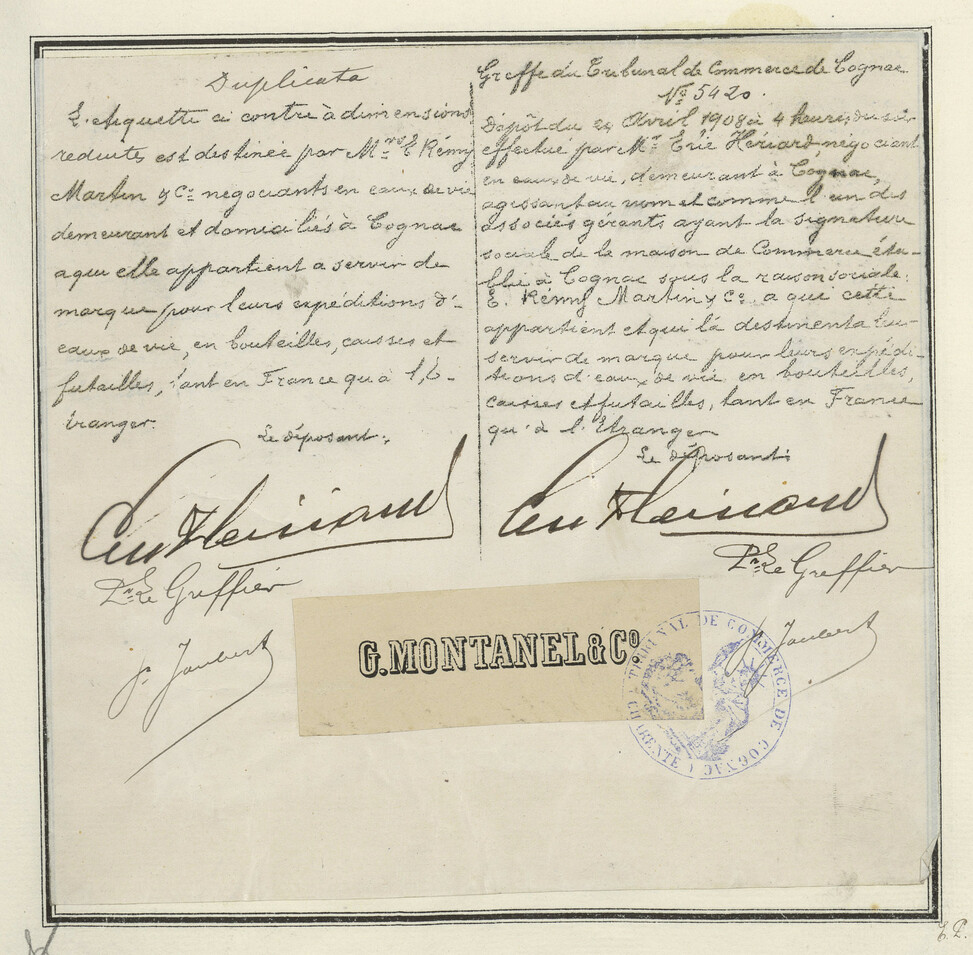 Duplicata
L'etiquette ci contre à dimensions
reduites est destinée par Mrs E Rémy
Martin & Cie negociants en eaux de vie
demeurant et domiciliés à Cognac
a qui elle appartient a servir de
marque pour leurs expéditions d'-
eaux de vie, en bouteilles, caisses et
futailles, tant en France qu'à l'é-
tranger.
Le déposant:
Pr Le Greffier
Jaubert
Greffe du Tribunal de Commerce de Cognac.
No 5420.
Dépôt du Avril 1908 à 4 heures du soir
effectué par Mr Eric Hériard, négociant
en eaux de vie, demeurant à Cognac,
agissant au nom et comme l'un des
associés gérants ayant la signature
sociale de la maison de Commerce éta-
blie à Cognac sous la raison sociale:
E. Rémy Martin & Co a qui cette
appartient et qui la destinent a leur
servir de marque pour leurs expédi-
tions d'eaux de vie en bouteilles,
caisses et futailles, tant en France
qu'à l'Etranger
Le déposant:
Pr Le Greffier
Jaubert
G. MONTANEL & Co.
TRIBUNAL DE COMMERCE DE COGNAC (CHARENTE)